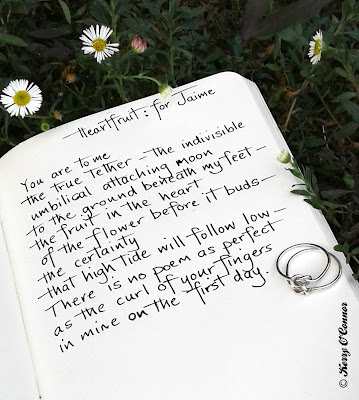 Heartfruit: for Jaime
You are to me
the true Tether - the indivisible
umbilical attaching moon
to the ground beneath my feet -
the fruit in the heart
of the flower before it buds -
the certainty
that high tide will follow low -
There is no poem as perfect
as the curl of your fingers
in mine on the first day.
© Kerry O'Connor